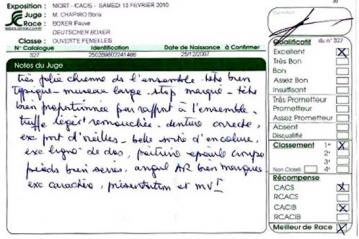 Exposition : NIORT - CACIS - SAMEDI 13 FEVRIER 2010
Juge : M. CHAPIRO Boris
Race : BOXER Fauve
DEUTSCHER BOXER
Classe : OUVERTE FEMELLES
N° Catalogue Identification Date de Naissance à Confirmer
327 250269602241466 25/12/2007
Notes du Juge
très jolie chienne de l'ensemble - tête bien
typique - museau large. stop marqué - tête
bien proportionnée par rapport à l'ensemble.
truffe légèrt remouchée - denture correcte,
exc port d'oreilles - belle sortie d'encolure,
exc ligne de dos, poitrine épaule corps
pieds bien serrés, angul AR bien marquées
exc caractère, présentation et mvt
Qualificatif N° 327
Excellent X
Très Bon
Bon
Assez Bon
Insuffisant
Très Prometteur
Prometteur
Assez Prometteur
Absent
Disqualifié
Classement 1° X
2°
3°
Non Classé 4°
Récompense
CACS X
RCACS
CACIB X
RCACIB
Meilleur de Race X